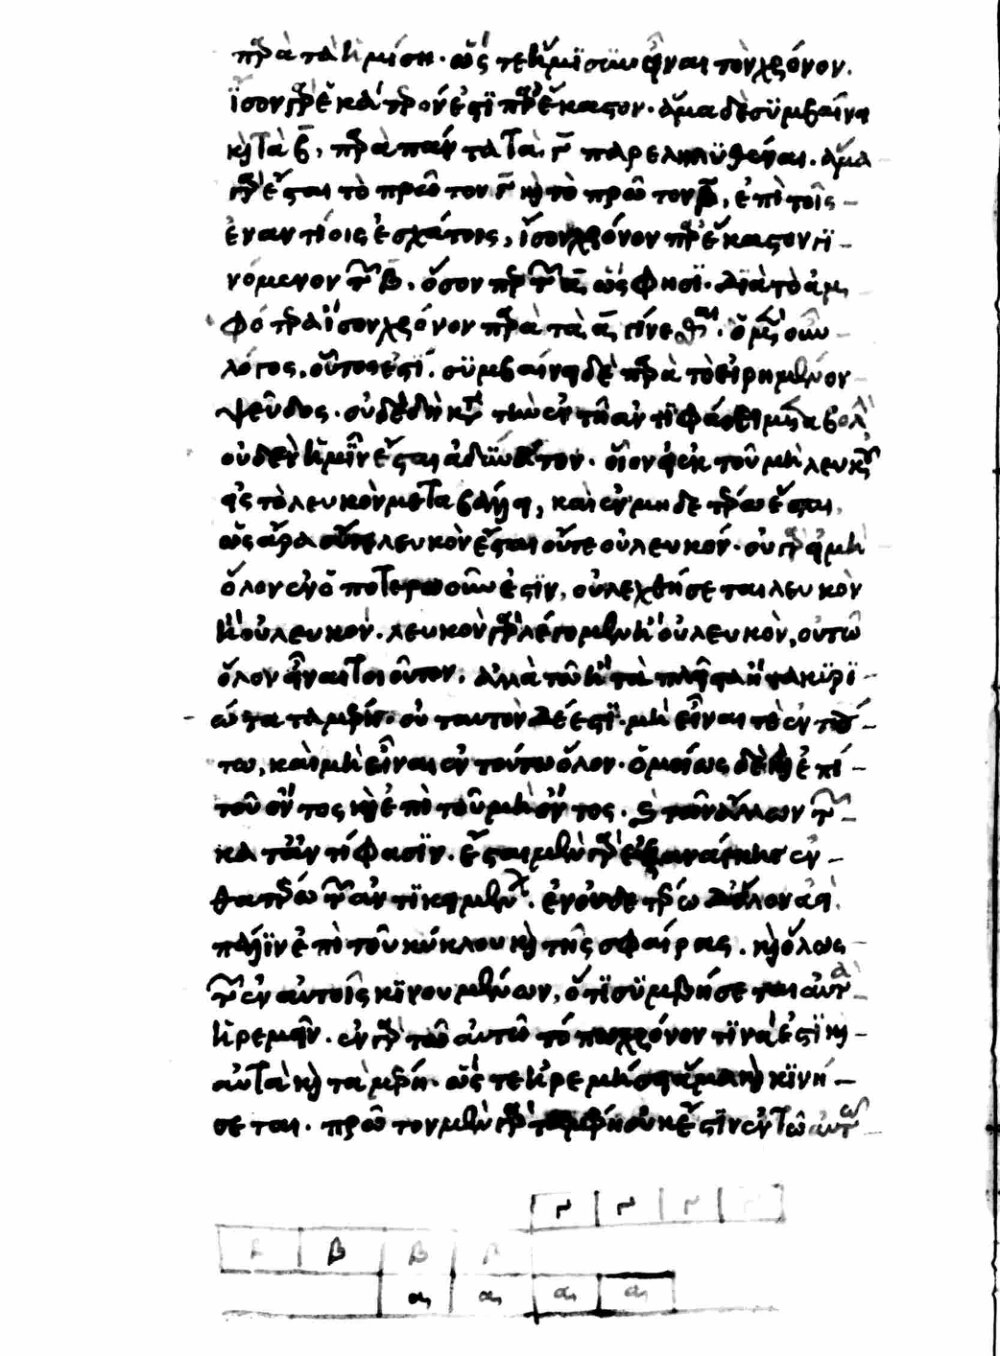 παρὰ τὰ ἡμίση· ὥστε ἥμισυν εἶναι τὸν χρόνον.
ἴσον γὰρ ἑκάτερόν ἐστι παρ' ἕκαστον. ἅμα δὲ συμβαίνει
καὶ τὰ β̄, παρὰ πάντα τὰ γ̄ παρεληλυθέναι. ἅμα
γὰρ ἔσται τὸ πρῶτον γ̄ καὶ τὸ πρῶτον β̄, ἐπὶ τοῖς
ἐναντίοις ἐσχάτοις, ἴσον χρόνον παρ' ἕκαστον γι-
νόμενον τῶν β̄. ὅσον περ τῶν ᾱ, ὥς φησι. διὰ τὸ ἀμ
φότερα ἴσον χρόνον παρὰ τὰ ᾱ γίνεσθαι. ὁ μὲν οὖν
λόγος, οὗτός ἐστι. συμβαίνει δὲ παρὰ τὸ εἰρημένον
ψεῦδος. οὐδὲ δὴ κατὰ τὴν ἐν τῇ ἀντιφάσει μεταβολὴν
οὐδὲν ἡμῖν ἔσται ἀδύνατον. οἷον εἰ ἐκ τοῦ μὴ λευκοῦ
εἰς τὸ λευκὸν μεταβάλλει, καὶ ἐν μηδετέρῳ ἐστιν,
ὡς ἄρα οὔτε λευκὸν ἔσται οὔτε οὐ λευκόν. οὐ γὰρ εἰ μὴ
ὅλον ἐν ὁποτερῳοῦν ἐστιν, οὐ λεχθήσεται λευκὸν
ἢ οὐ λευκόν. λευκὸν γὰρ λέγομεν ἢ οὐ λευκὸν, οὐ τῷ
ὅλον εἶναι τοιοῦτον. ἀλλὰ τῷ ἢ τὰ πλεῖστα ἢ τὰ κυρι
ώτατα μέρη. οὐ ταυτὸν δέ ἐστι μὴ εἶναι τε ἐν τού
τω, καὶ μὴ εἶναι ἐν τούτω ὅλον. ὁμοίως δὲ καὶ ἐπὶ
τοῦ ὄντος καὶ ἐπὶ τοῦ μὴ ὄντος. καὶ τῶν ἄλλων τῶν
κατ' ἀντίφασιν. ἔσται μὲν γὰρ ἐξ ἀνάγκης ἐν
θατέρω τῶν ἀντικειμένων. ἐν οὐδετέρω δὲ ὅλον ἀεί.
πάλιν ἐπὶ τοῦ κύκλου καὶ τῆς σφαίρας. καὶ ὅλως
τῶν ἐν αὐτοῖς κινουμένων, ὅτι συμβήσεται αὐτὰ
ἠρεμεῖν. ἐν γὰρ τῷ αὐτῷ τόπῳ χρόνον τινά ἐστι καὶ
αὐτὰ καὶ τὰ μέρη. ὥστε ἠρεμήσει ἅμα καὶ κινή
σεται. πρῶτον μὲν γὰρ τὰ μέρη οὐκ ἔστιν ἐν τῷ αὐτῷ
γ γ γ γ
β β β β
α α α α